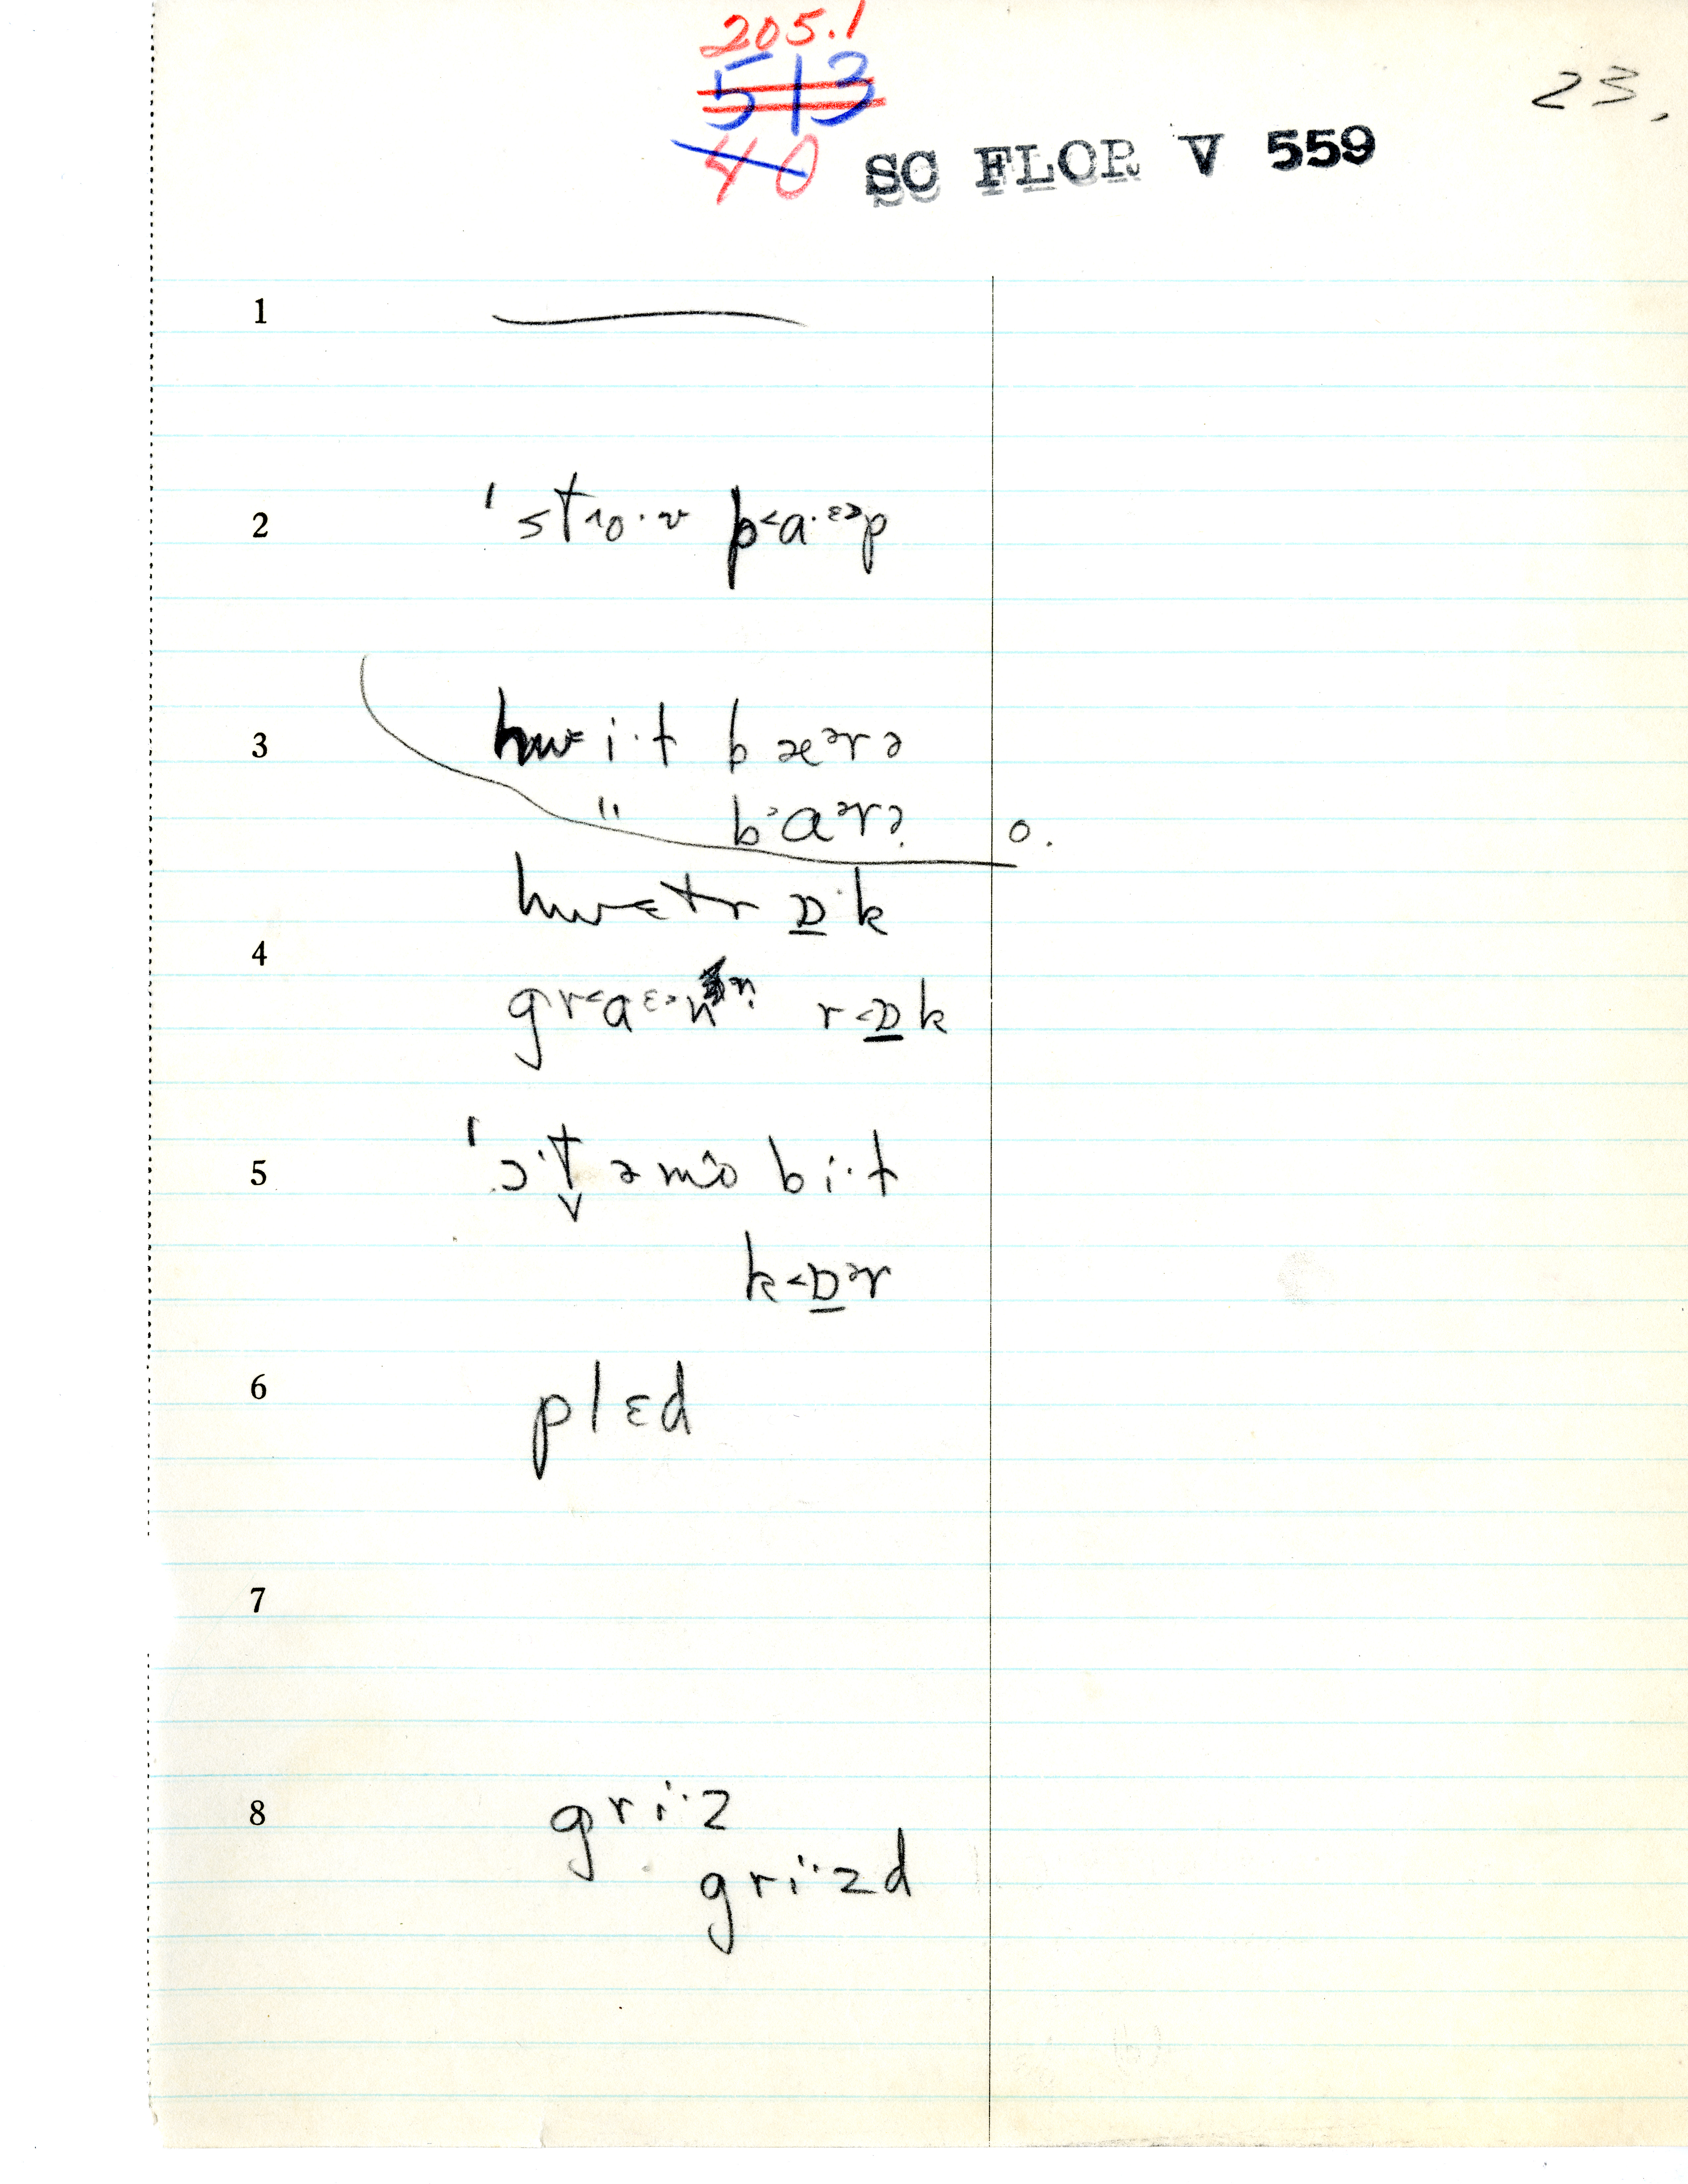 205.1
513
23.
40 SC FLOR V 559
1
2 ˈstɹoˑv p˂aˑᵋ˃p
3 hwiˑt bæᵊrə
" b˃aᵊrə o.
hwɛtr ɒ̲ˑk
4
gr˂aᵋ˃n r˂ɒ̲k
5 ˈɔˑt̬əmôbiˑt
k˂ɒ̲ᵊr
6 plɛd
7
8 griˑz
griˑzd